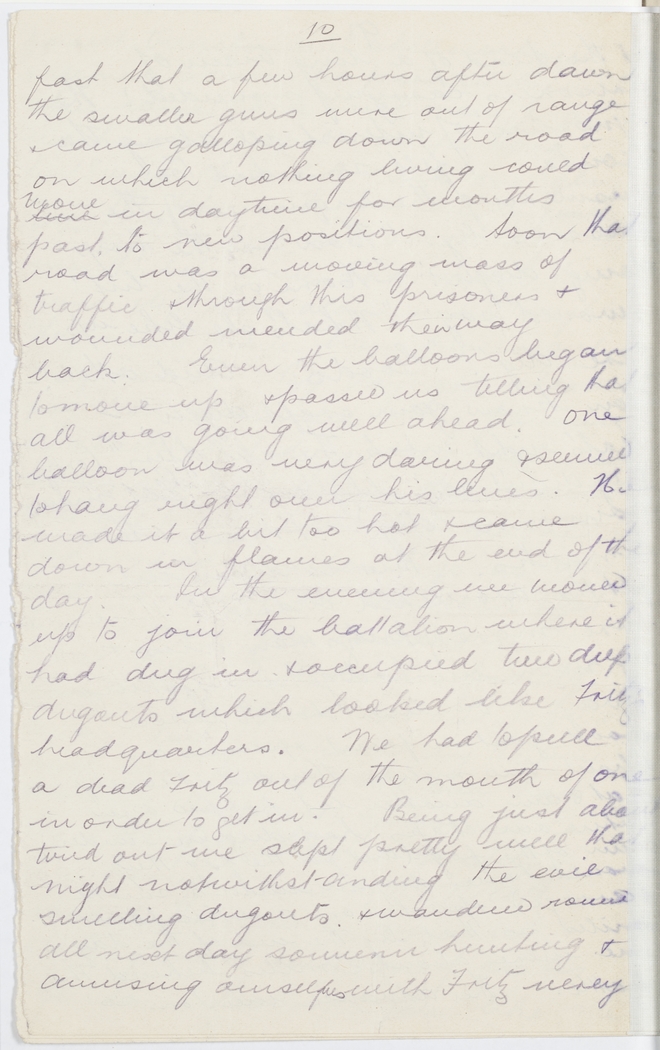 10
fast that a few hours after dawn
the smaller guns were out of range
& came galloping down the road
on which nothing living could
move
live in daytime for months
past, to new positions. Soon tha
road was a moving mass of
traffic & through this prisoners &
wounded wended their way
back. Even the balloons began
to move up & passed us telling tha
all was going well ahead. One
balloon was very daring & seemed
to hang right over his lines. He
made it a bit too hot & came
down in flames at the end of th
day. In the evening we moved
up to join the battalion where it
had dug in & occupied two deep
dugouts which looked like Fritz
headquarters. We had to pull
a dead Fritz out of the mouth of one
in order to get in. Being just abo
tired out we slept pretty well tha
night notwithstanding the evil
smelling dugouts. & wandered round
all next day souvenir hunting &
amusing ourselves with Fritz verey